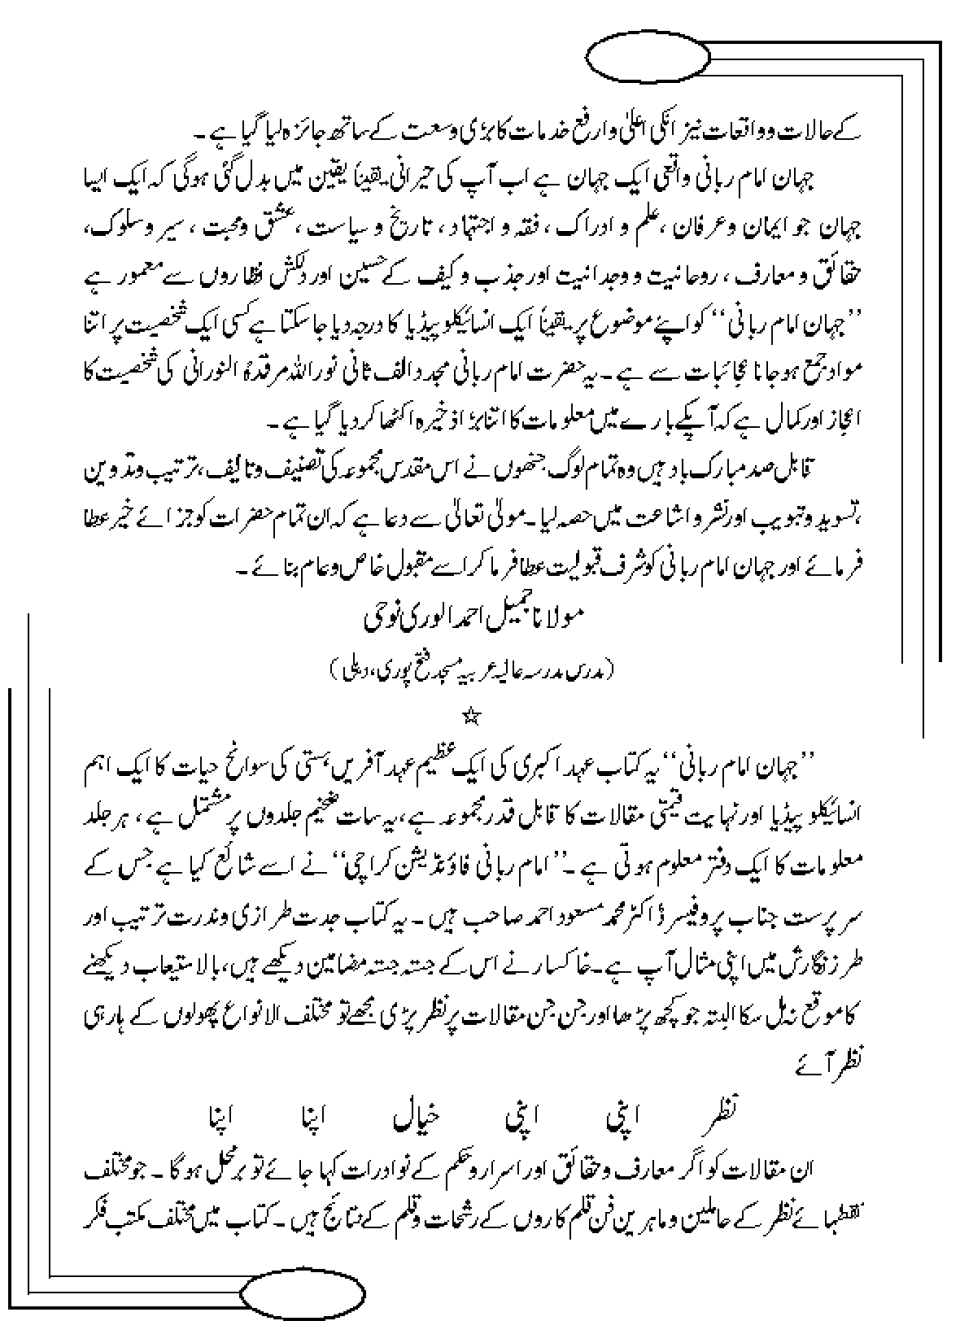 کے حالات و واقعات نیز انکی اعلیٰ وارفع خدمات کا بڑی وسعت کے ساتھ جائزہ لیا گیا ہے ۔
جہان امام ربانی واقعی ایک جہان ہے اب آپ کی حیرانی یقیناً یقین میں بدل گئی ہوگی کہ ایک ایسا
جہان جو ایمان و عرفان ، علم و ادراک ، فقہ و اجتہاد ، تاریخ و سیاست ، عشق و محبت ، سیر و سلوک،
حقائق و معارف ، روحانیت و وجدانیت اور جذب و کیف کے حسین اور دلکش نظاروں سے معمور ہے
’’جہان امام ربانی‘‘ کو اپنے موضوع پر یقیناً ایک انسائیکلوپیڈیا کا درجہ دیا جا سکتا ہے کسی ایک شخصیت پر اتنا
مواد جمع ہو جانا عجائبات سے ہے ۔ یہ حضرت امام ربانی مجدد الف ثانی نور اللہ مرقدہٗ النورانی کی شخصیت کا
اعجاز اور کمال ہے کہ آپکے بارے میں معلومات کا اتنا بڑا ذخیرہ اکٹھا کر دیا گیا ہے ۔
قابل صد مبارک باد ہیں وہ تمام لوگ جنھوں نے اس مقدس مجموعہ کی تصنیف و تالیف ، ترتیب و تدوین
،تسوید و تبویب اور نشر و اشاعت میں حصہ لیا ۔ مولیٰ تعالیٰ سے دعا ہے کہ ان تمام حضرات کو جزائے خیر عطا
فرمائے اور جہان امام ربانی کو شرف قبولیت عطا فرما کر اسے مقبول خاص و عام بنائے ۔
مولانا جمیل احمد الوری نوحی
(مدرس مدرسہ عالیہ عربیہ مسجد فتح پوری ، دہلی)
☆
’’جہان امام ربانی‘‘ یہ کتاب عہد اکبری کی ایک عظیم عہد آفریں ہستی کی سوانح حیات کا ایک اہم
انسائیکلوپیڈیا اور نہایت قیمتی مقالات کا قابل قدر مجموعہ ہے ، یہ سات ضخیم جلدوں پر مشتمل ہے ، ہر جلد
معلومات کا ایک دفتر معلوم ہوتی ہے ۔ ’’امام ربانی فاؤنڈیشن کراچی‘‘ نے اسے شائع کیا ہے جس کے
سرپرست جناب پروفیسر ڈاکٹر محمد مسعود احمد صاحب ہیں ۔ یہ کتاب جدت طرازی وندرت ترتیب اور
طرز نگارش میں اپنی مثال آپ ہے ۔ خاکسار نے اس کے جستہ جستہ مضامین دیکھے ہیں ، بالاستیعاب دیکھنے
کا موقع نہ مل سکا البتہ جو کچھ پڑھا اور جن جن مقالات پر نظر پڑی مجھے تو مختلف الانواع پھولوں کے ہار ہی
نظر آئے
نظر اپنی اپنی خیال اپنا اپنا
ان مقالات کو اگر معارف وحقائق اور اسرار و حکم کے نوادرات کہا جائے تو بر محل ہوگا ۔ جو مختلف
نقطہائے نظر کے حاملین و ماہرین فن قلم کاروں کے رشحات و قلم کے نتائج ہیں ۔ کتاب میں مختلف مکتب فکر